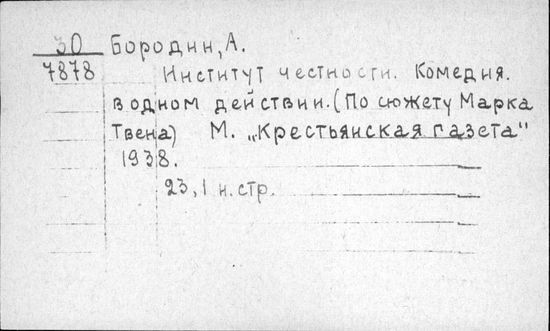 30 Бородин, А.
7878 Институт честности. Комедия.
в одном действии. (По сюжету Марка
Твена) М. „Крестьянская газета"
1938.
23, 1 н. стр.